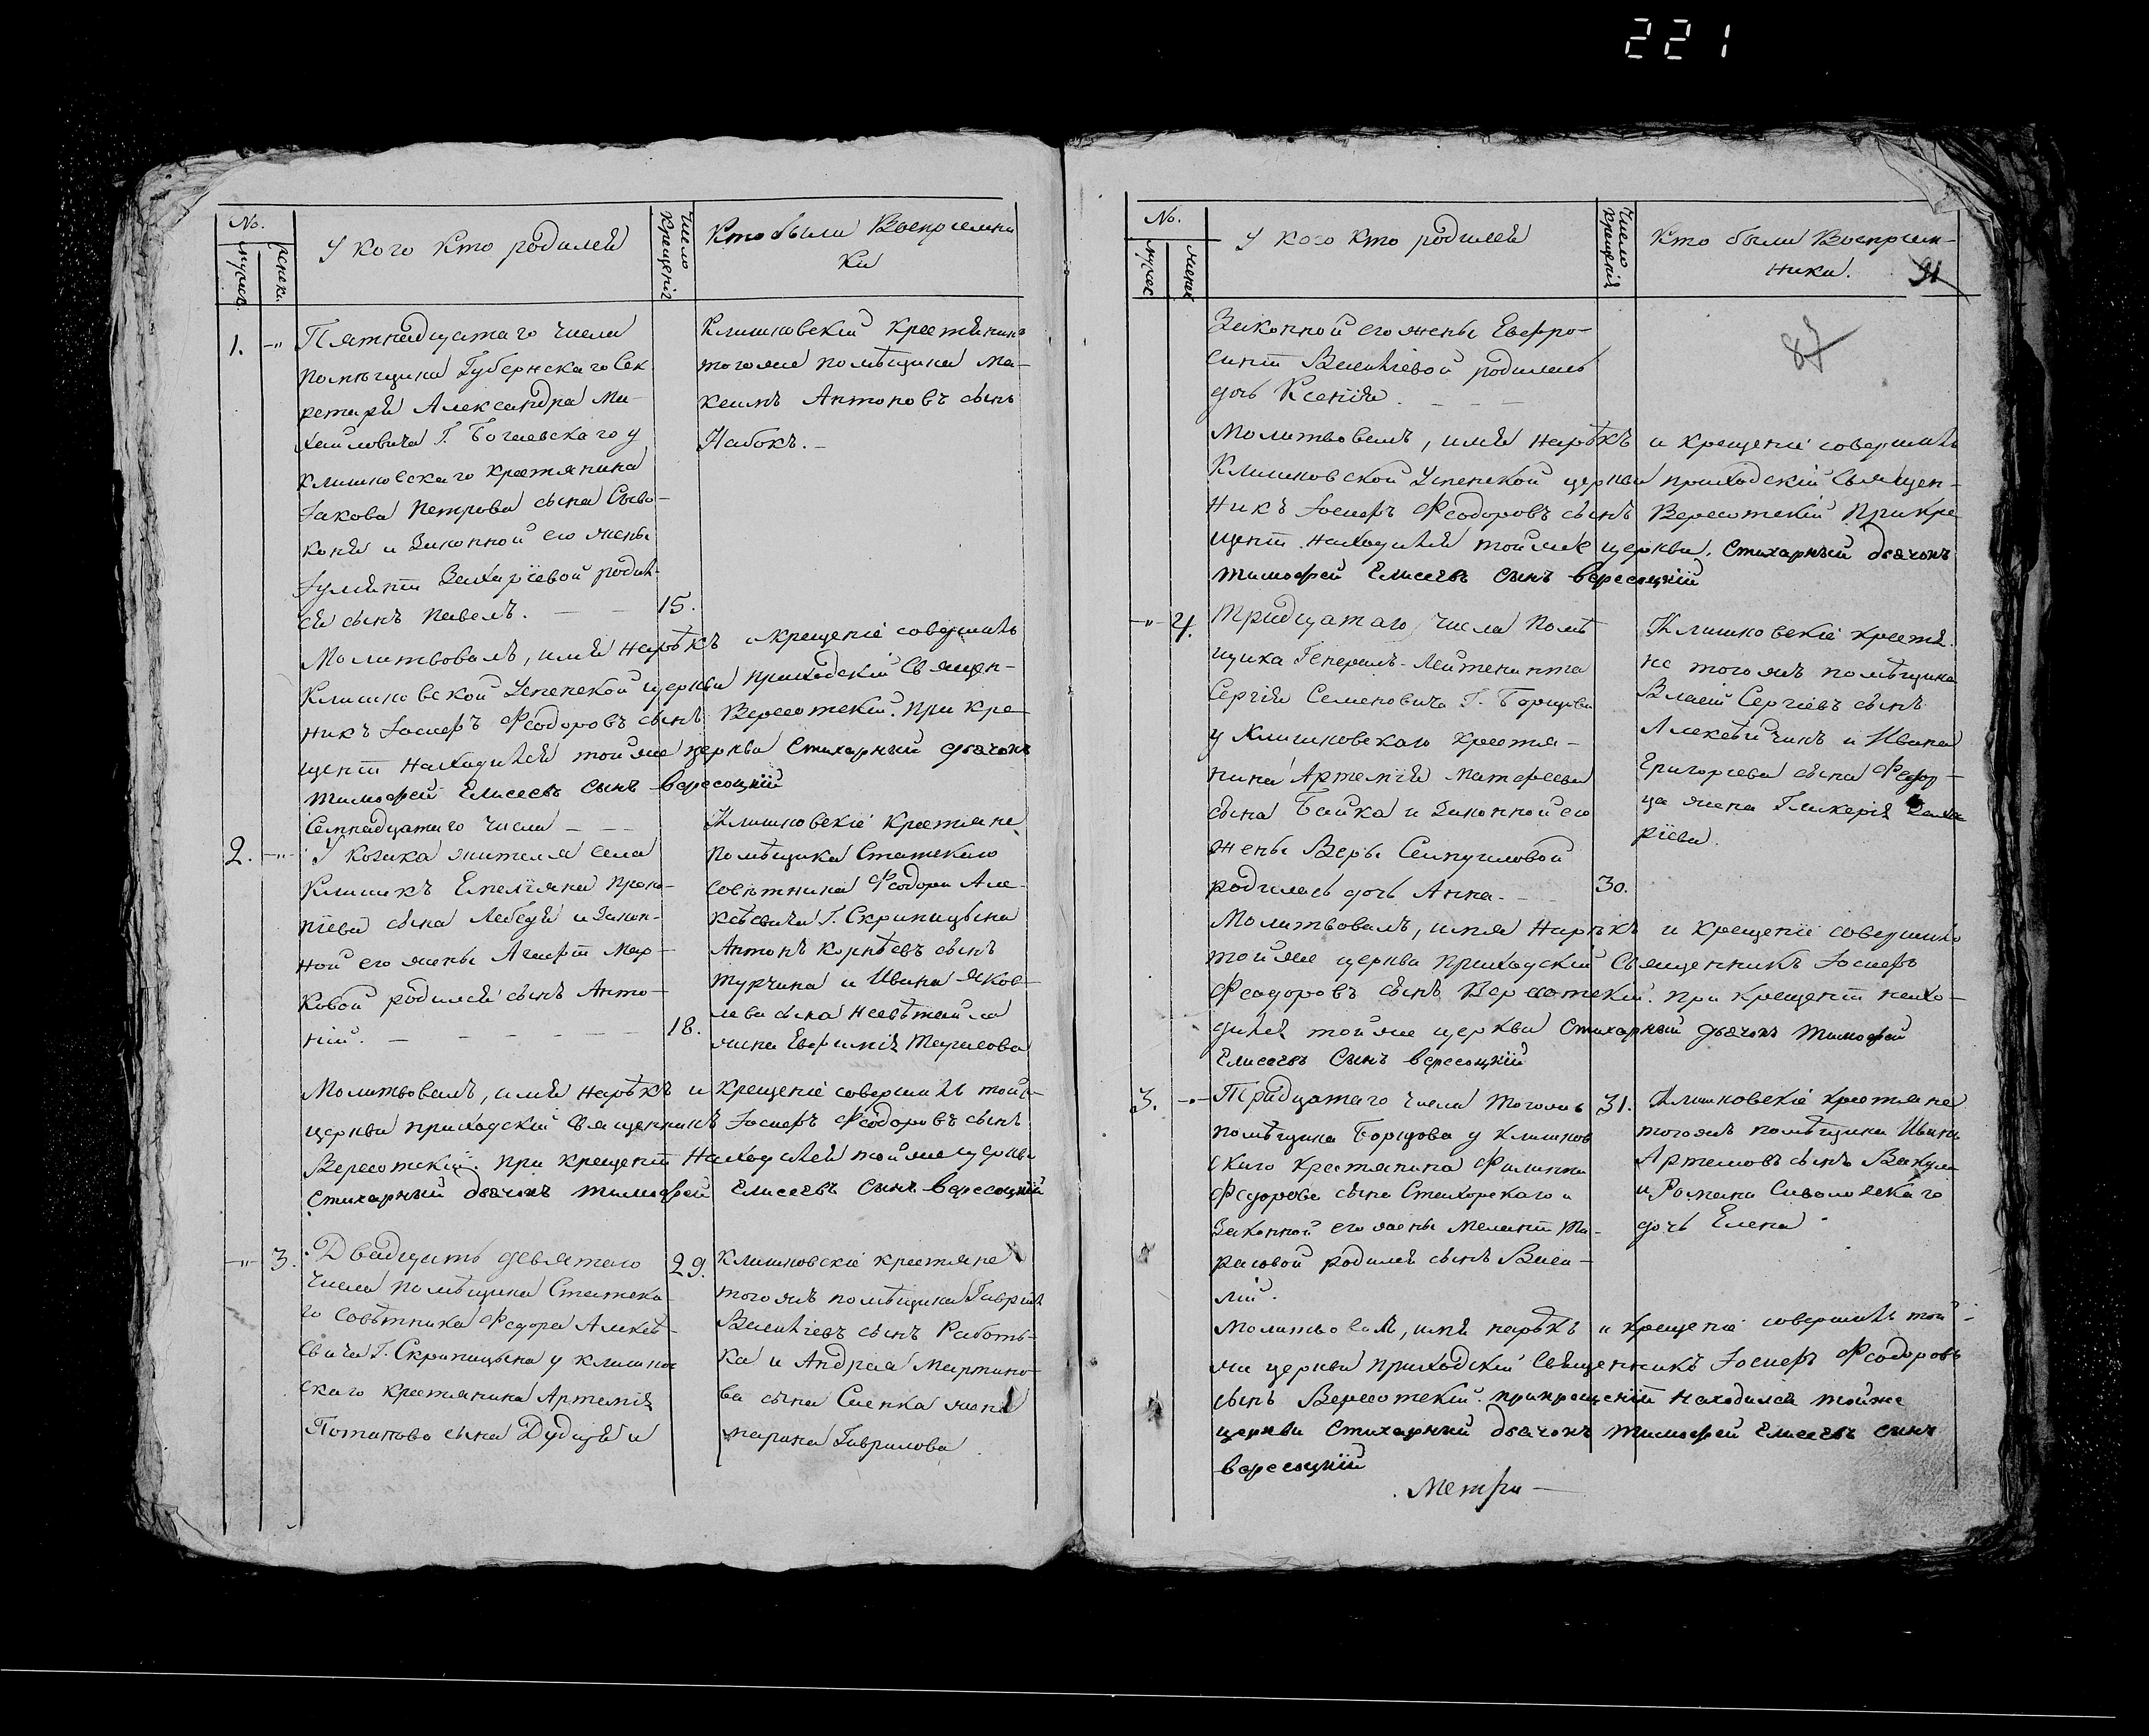 221
No.
мужеск
женск.
У кого кто родился
Число крещенія
Кто были Воспріемни
ки
1.
Пятнадцатаго числа
помѣщика Губернскаго Сек
ретаря Александра Ми-
хайловича Г. Богаевскаго у
клишковскаго крестянина
Іакова Петрова сына Сиво-
коня и законной его жены
Іуліяніи Захаріевой родил-
ся сынъ Павелъ.
15.
Клишковскій крестянинъ
тогоже помѣщика Ма-
ксимъ Антоновъ сынъ
Набокъ.
Молитвовалъ, имя нарѣкъ и крещеніе совершилъ
Клишковской Успенской церкви приходскій Священ-
никъ Іосифъ Феодоровъ сынъ Вересотскій. При кре-
щеніи находился тойже церкви Стихарный дьячокъ
Тимофей Елисеевъ Сынъ Вересоцкій
2.
Семнадцатаго числа
У козака жителя села
Клишкъ Емеліяна Проко-
піева сына Лебедя и закон-
ной его жены Агафіи Мар-
ковой родился сынъ Анто-
ній.
18.
Клишковскіе крестяне
помѣщика Статскаго
совѣтника Феодора Але-
ксѣевича Г. Скрипицына
Антонъ Корнѣевъ сынъ
Турчина и Ивана Яков-
лева сына
жена Евфимія Тарасова
Молитвовалъ, имя нарѣкъ и крещеніе совершилъ тойж-
церкви приходскій Священникъ Іосифъ Феодоровъ сынъ
Вересотскій. при крещеніи находился тойже церкви
Стихарный дьячокъ Тимофей Елисеевъ Сынъ Вересоцкій
3.
Двадцять девятаго
числа помѣщика Статска-
го совѣтника Федора Алексѣ-
евича Г. Скрипицына у клишков
скаго крестянина Артемія
Потапова сына Дудця и
29.
Клишковскіе крестяне
тогожъ помѣщика Гавріилъ
Василіевъ сынъ Работь-
ка и Андрея Мартино-
ва сына Сиенка жена
Марина Гаврилова.
No.
мужес
женск
У кого кто родился
Число крещенія
Кто были Воспріем-
ники.
91
87
Законной его жены Евфро-
синіи Василіевой родилась
дочь Ксенія.
Молитвовалъ, имя нарѣкъ и крещеніе совершилъ
Клишковской Успенской церкви приходскій Священ-
никъ Іосифъ Феодоровъ сынъ Вересотскій При кре
щеніи находился тойже церкви, Стихарный дьячокъ
Тимофей Елисеевъ Сынъ Вересоцкій
4.
Тридцатаго числа Помѣ
щика Генералъ-Лейтенанта
Сергія Семеновича Г. Борщова
у Клишковскаго крестя-
нина Артемія Матфеева
сына Байка и законной его
жены Веры Самуиловой
родилась дочь Анна.
30.
Клишковскіе крестя-
не тогожъ помѣщика
Власій Сергіевъ сынъ
Алексѣйчикъ и Ивана
Григоріева сына Федор-
ца жена Гликерія Заха
ріева.
Молитвовалъ, имя нарѣкъ и крещеніе совершилъ
тойже церкви приходскій Священникъ Іосифъ
Феодоровъ сынъ Вересотскій. при крещеніи нахо-
дился тойже церкви Стихарный дьячокъ Тимофей
Елисеевъ Сынъ Вересоцкій
3.
Тридцатаго числа тогожъ
помѣщика Борщова у клишков
скаго крестянина Филиппа
Федорова сына Стахорскаго и
законной его жены Меланіи Та-
расовой родился сынъ Васи-
лій.
31.
Клишковскіе крестяне
тогожъ помѣщика Иванъ
Артемовъ сынъ Вакула
и Романа Сиволожскаго
дочь Елена.
Молитвовалъ, имя нарѣкъ и крещеніе совершилъ той-
жи церкви приходскій Священникъ Іосифъ Феодоровъ
сынъ Вересотскій. при крещеніи находился тойже
церкви Стихарный дьячокъ Тимофей Елисеевъ Сынъ
Вересоцкій
Метри-